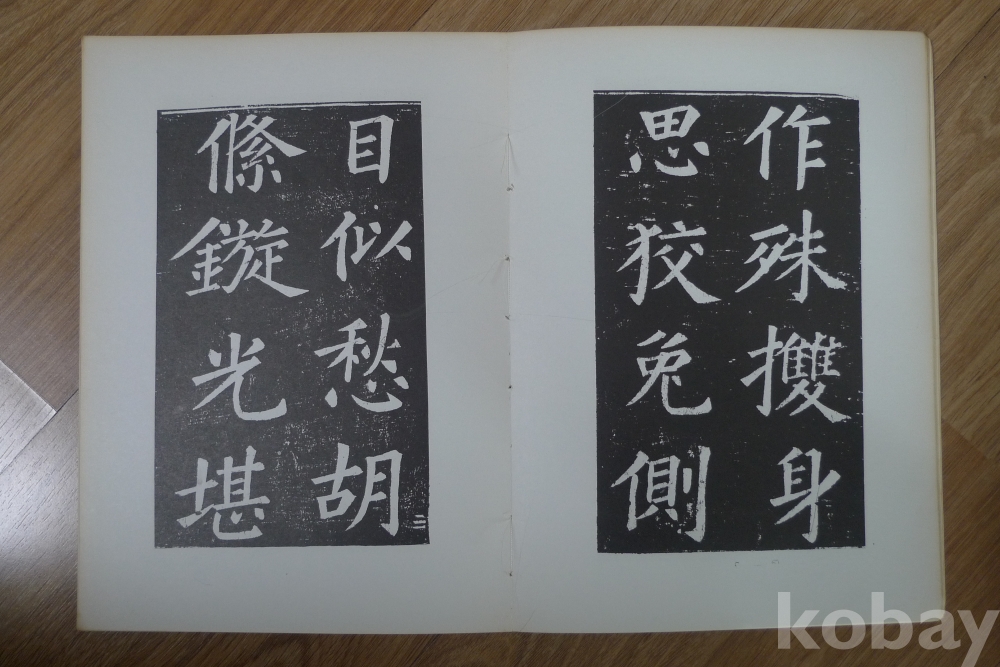 作殊㩳身
思狡兔側
目似愁胡
絛鏇光堪
二
kobay